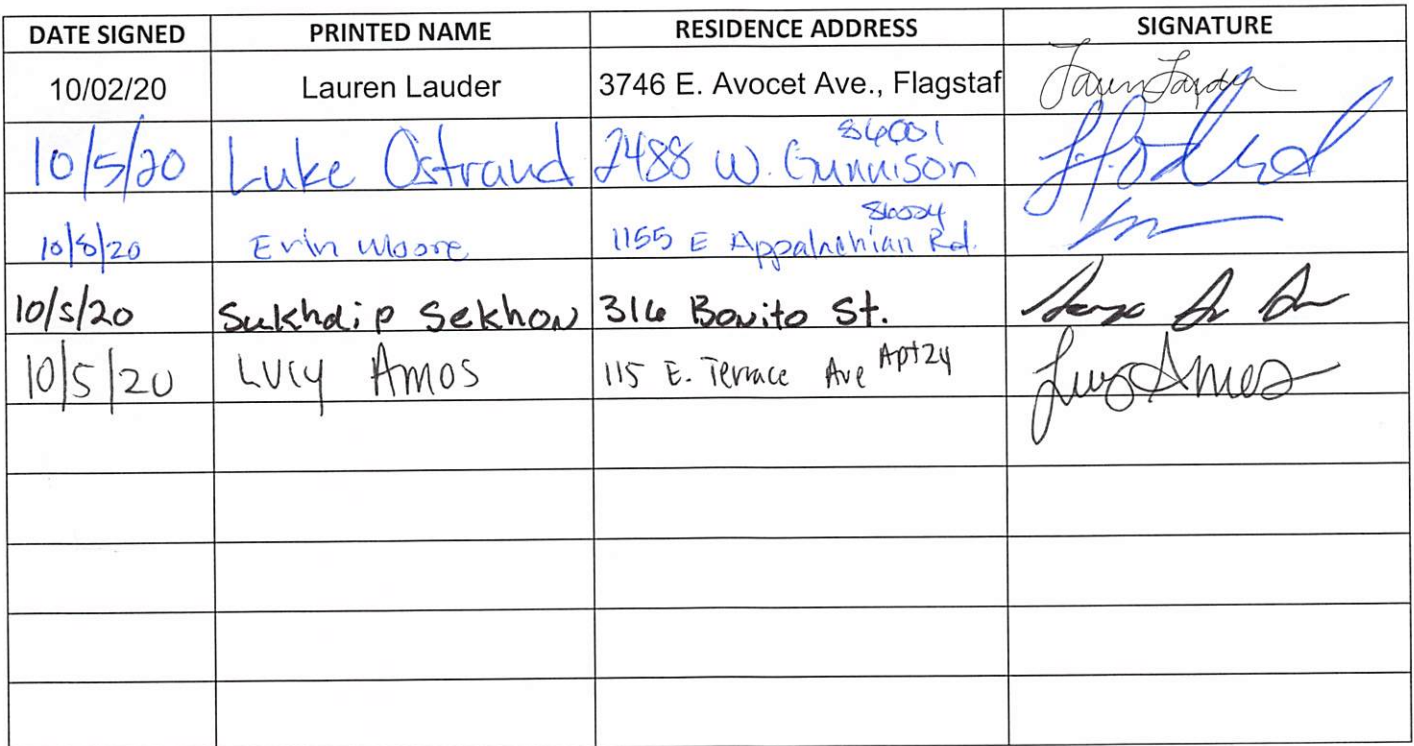 DATE SIGNED PRINTED NAME RESIDENCE ADDRESS SIGNATURE
10/02/20 Lauren Lauder 3746 E. Avocet Ave., Flagstaf
86001
10/5/20 Luke Ostraud 2488 W. Gunnison
86004
10/8/20 Erin Moore 1155 E Appalachian Rd.
10/5/20 Sukhdip Sekhon 316 Bonito St.
10/5/20 Lucy Amos 115 E. Terrace Ave Apt 24 Lucy Amos